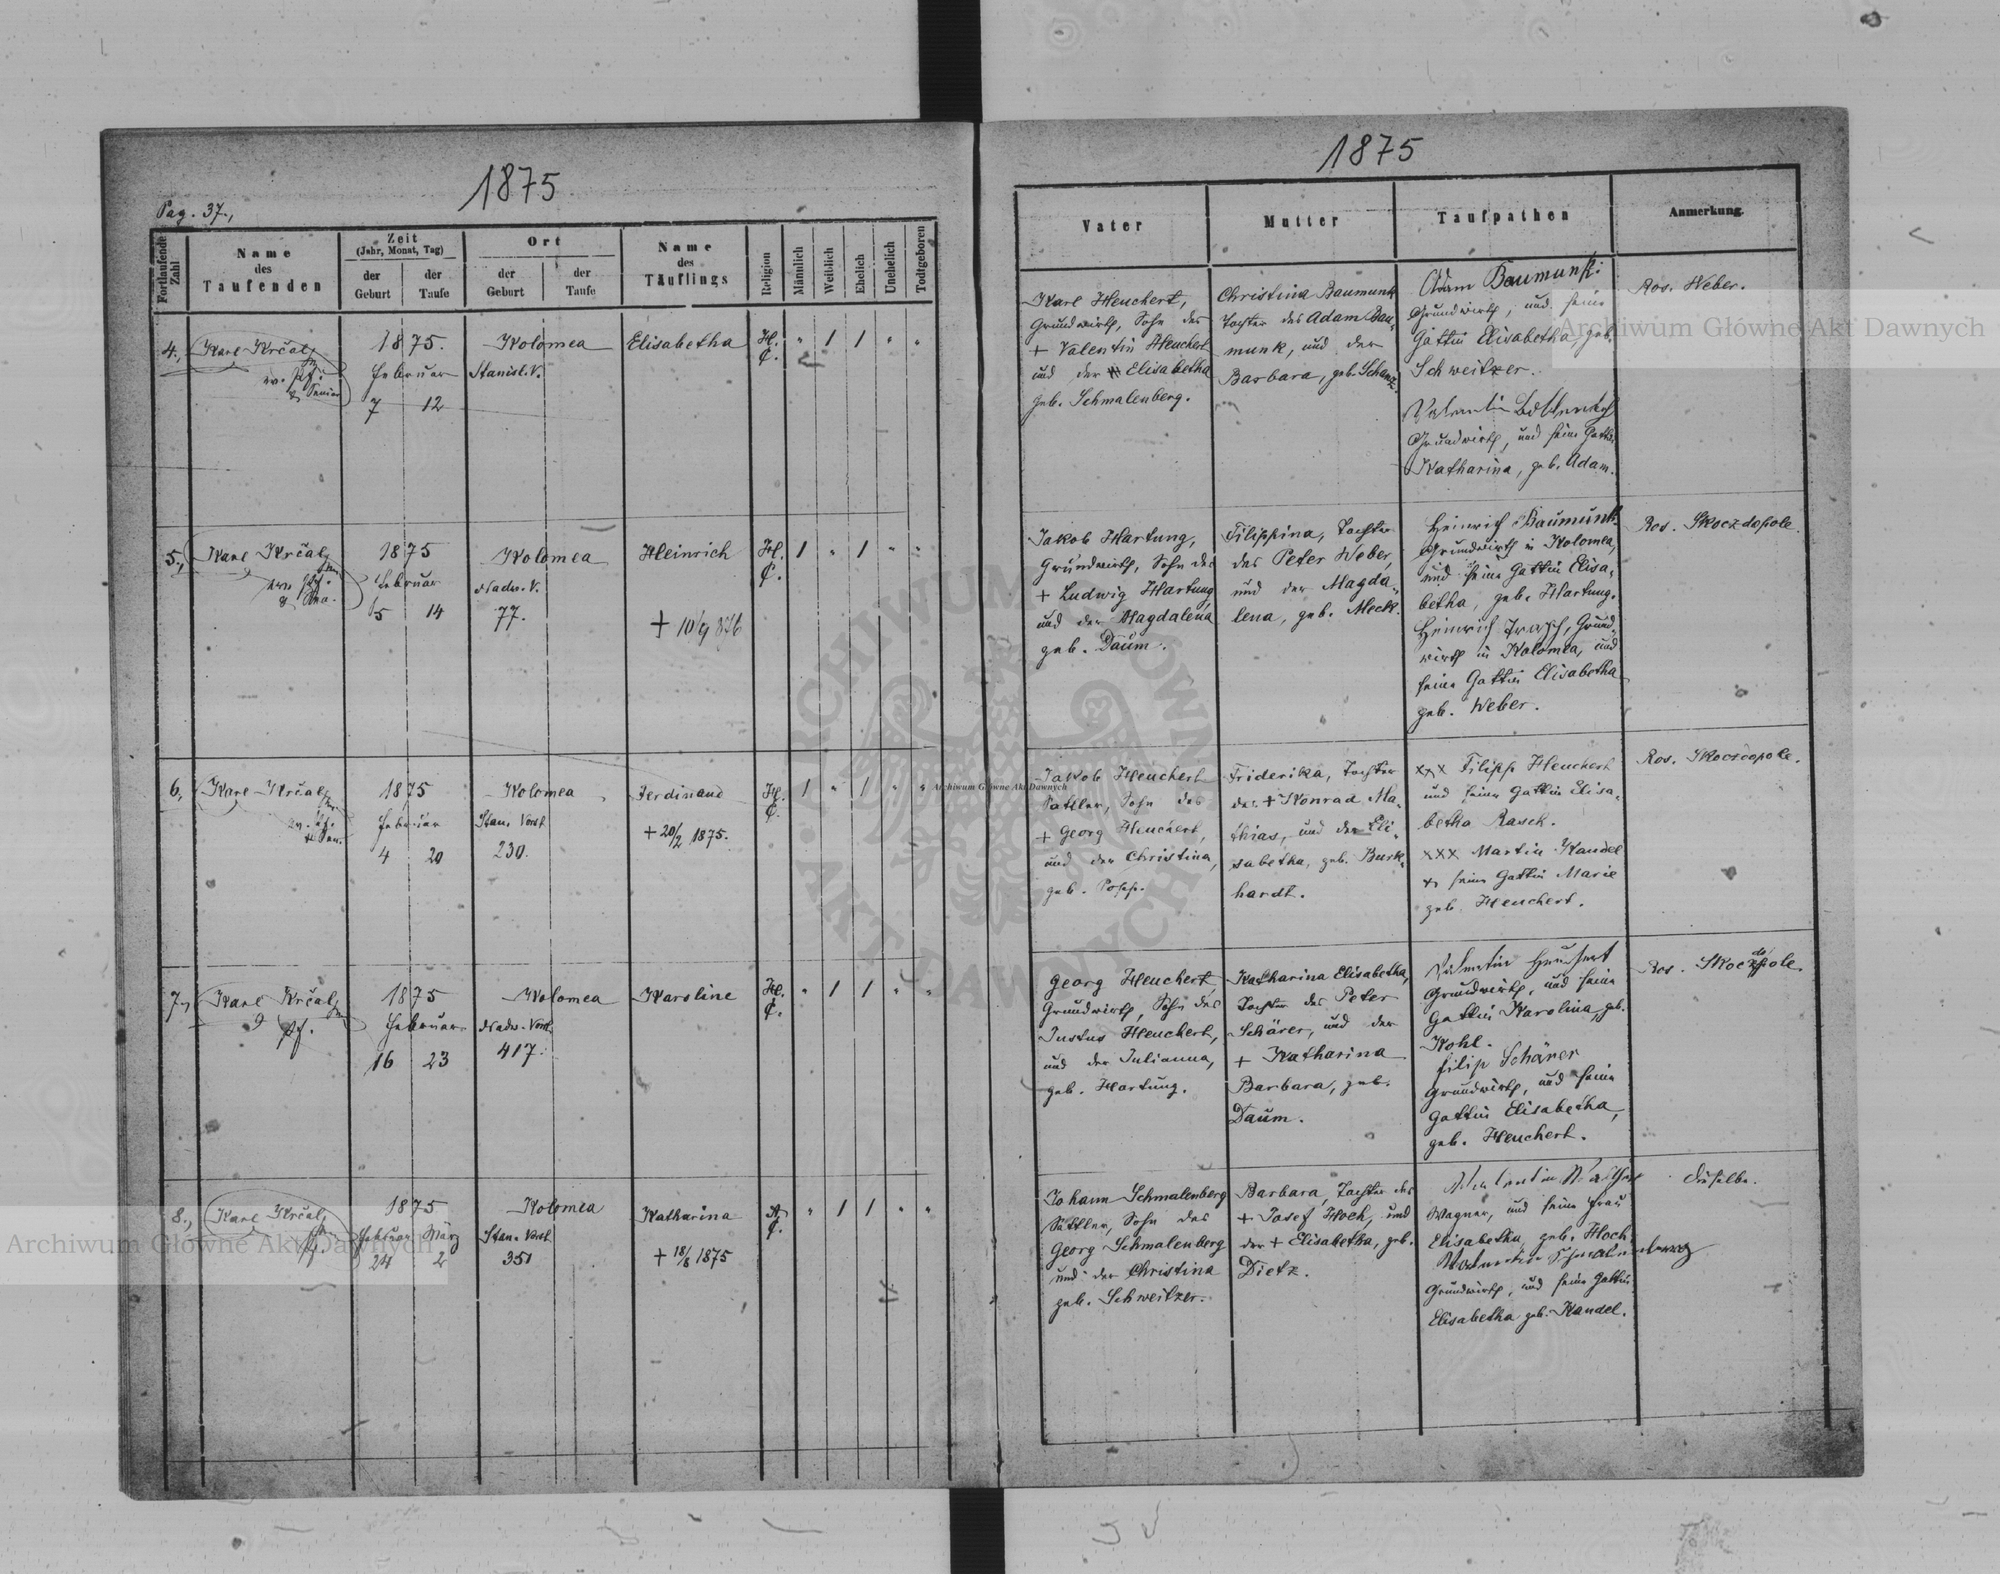 1875
Pag. 37.,
Fortlaufende Zahl
Name des Taufenden
Zeit
(Jahr, Monat, Tag)
der Geburt
der Taufe
Ort
der Geburt
der Taufe
Name des Täuflings
Religion
Männlich
Weiblich
Ehelich
Unehelich
Todtgeboren
4.,
Karl Krčal
ev. Pf.
& Senior
1875.
Februar
7 12
Kolomea
Stanisl. V.
Elisabetha
H. C.
" 1 1 " "
5.,
Karl Krčal
1875
Februar
5 14
Kolomea
Nadw. V.
77.
Heinrich
H. C.
1 " 1 " "
6.,
Karl Krčal
ev. Pf.
& Sen.
1875
Februar
4 20
Kolomea
Stan. Vorst
230.
Ferdinand
+ 20/2 1875.
H. C.
1 " 1 " "
7.,
Karl Krčal
Pf.
1875
Februar
16 23
Kolomea
Nadw. Vorst.
417.
Karoline
H. C.
" 1 1 " "
8.,
Karl Krčal
Pf.
1875
Februar März
24 2
Kolomea
Stan. Vorst
351
Katharina
+ 18/8 1875
A. C.
" 1 1 " "
1875
Vater
Mutter
Taufpathen
Anmerkung.
Karl Heuchert,
Grundwirth, Sohn des
+ Valentin Heuchert
und der Elisabetha
geb. Schmalenberg.
Christina Baumunk
Tochter des Adam Bau-
munk, und der
Barbara, geb. Schanz
Adam Baumunk:
Grundwirth, und seine
Gattin Elisabetha, geb.
Schweitzer.
Grundwirth, und seine Gattin
Katharina, geb. Adam.
Ros. Weber.
Jakob Hartung,
Grundwirth, Sohn des
+ Ludwig Hartung
und der Magdalena
geb. Daum.
Filippina, Tochter
des Peter Weber,
und der Magda-
lena, geb. Meck.
Heinrich Baumunk
Grundwirth in Kolomea,
und seine Gattin Elisa-
betha, geb. Hartung.
Heinrich Trapp, Grund-
wirth in Kolomea, und
seine Gattin Elisabetha
geb. Weber.
Ros. Skoczdopole.
Jakob Heuchert
Sattler, Sohn des
+ Georg Heuchert,
und der Christina,
geb. Popp.
Friderika, Tochter
des + Konrad Ma-
thias, und der Eli-
sabetha, geb. Burk-
hardt.
xxx Filipp Heuchert
und seine Gattin Elisa-
betha Rasch.
xxx Martin Kandel
& seine Gattin Marie
geb. Heuchert.
Ros. Skoczdopole.
Georg Heuchert,
Grundwirth, Sohn des
Justus Heuchert,
und der Julianna,
geb. Hartung.
Katharina Elisabetha,
Tochter des Peter
Schärer, und der
+ Katharina
Barbara, geb.
Daum.
Valentin Heuchert
Grundwirth, und seine
Gattin Karolina, geb.
Kohl.
Filip Schärer
Grundwirth, und seine
Gattin Elisabetha,
geb. Heuchert.
Ros. Skoczdopole.
Johann Schmalenberg
Sattler, Sohn des
Georg Schmalenberg
und der Christina
geb. Schweitzer.
Barbara, Tochter des
+ Josef Hoch, und
der + Elisabetha, geb.
Dietz.
Valentin Walther
Wagner, und seine Frau
Elisabetha, geb. Hoch
Valentin Schmalenberg
Grundwirth, und seine Gattin
Elisabetha geb. Kandel.
dieselbe.
Archiwum Główne Akt Dawnych
Archiwum Główne Akt Dawnych
Archiwum Główne Akt Dawnych
ARCHIWUM GŁÓWNE AKT DAWNYCH